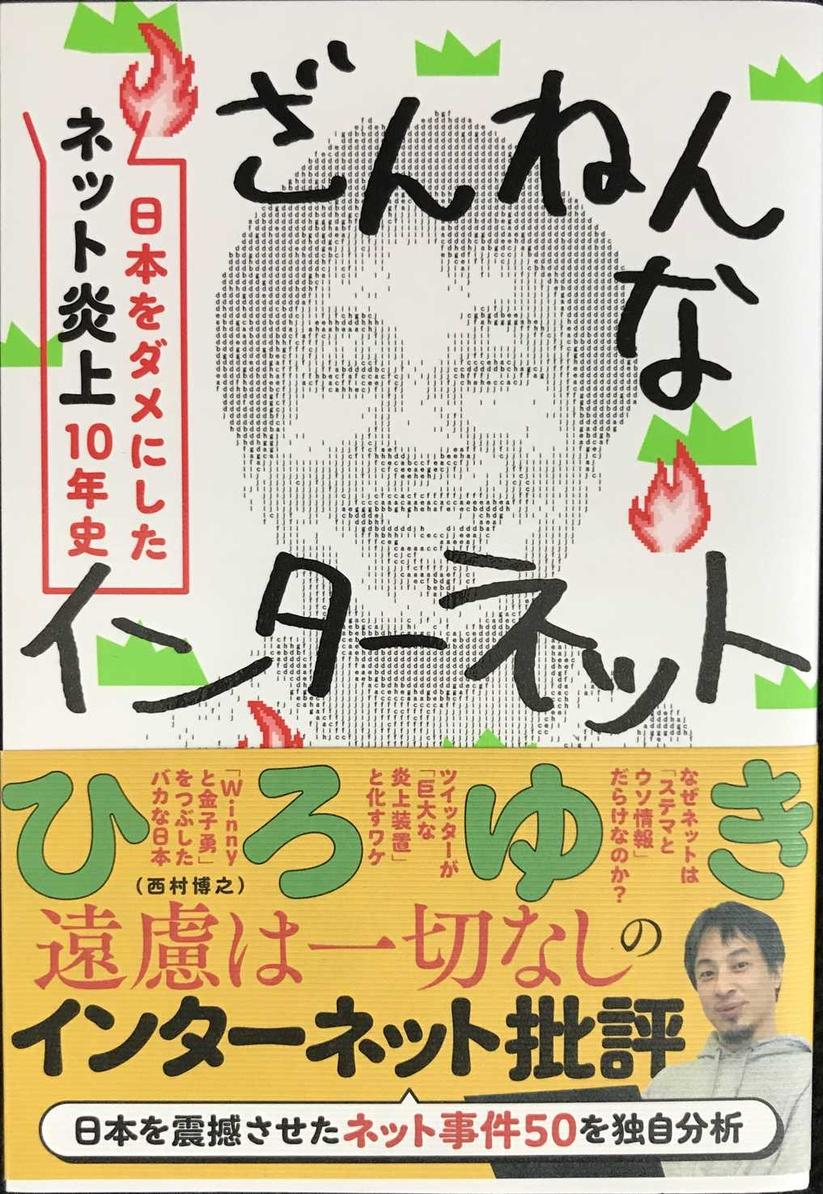 ざんねん
な
インターネット
日本をダメにした
ネット炎上10年史
ひろゆき
(西村博之)
なぜネットは
「ステマと
ウソ情報」
だらけなのか?
ツイッターが
「巨大な
炎上装置」
と化すワケ
「Winny
と金子勇」
をつぶした
バカな日本
遠慮は一切なしの
インターネット批評
日本を震撼させたネット事件50を独自分析